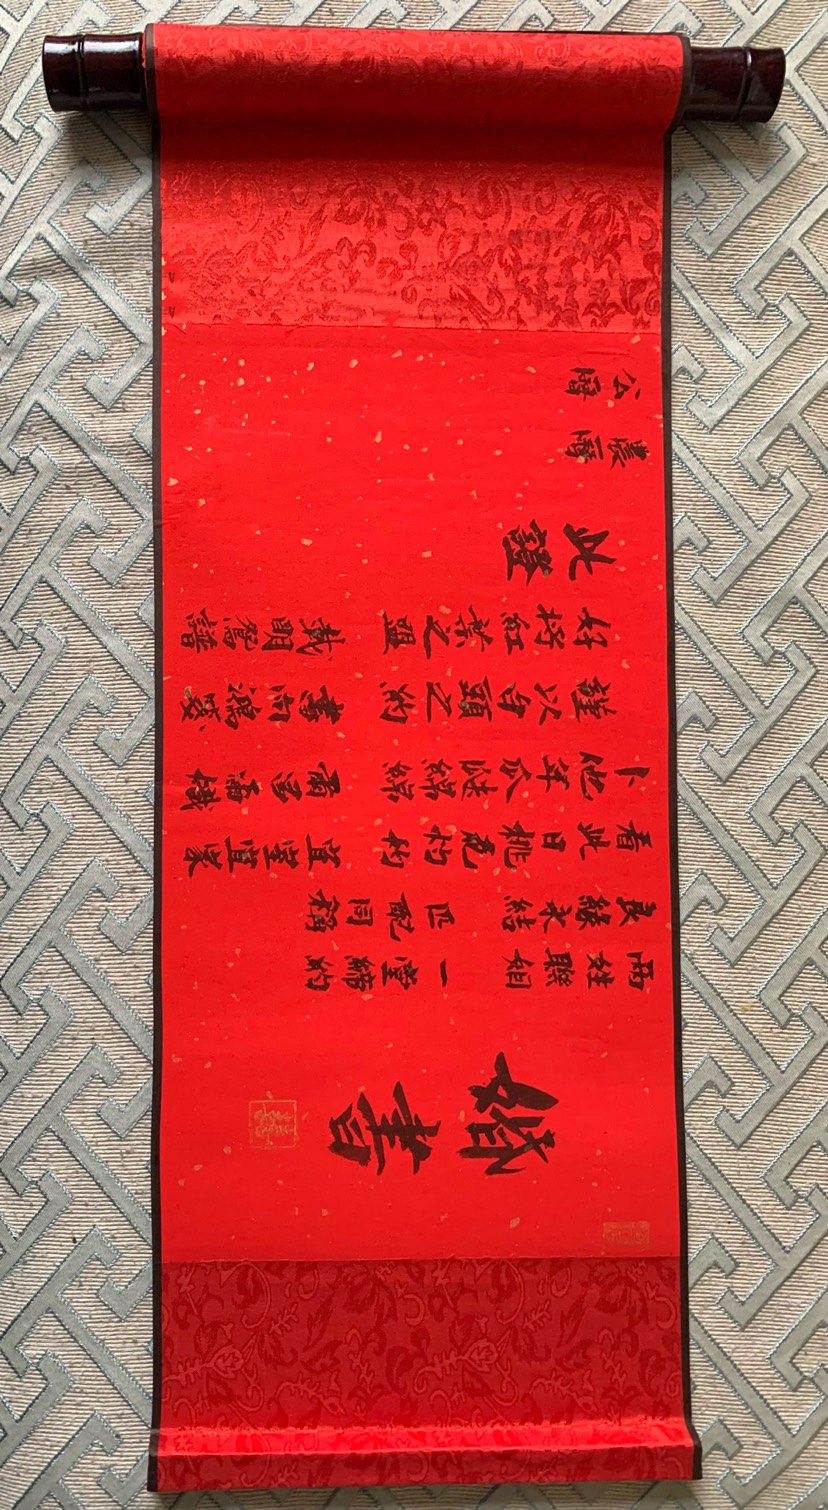 婚書
兩姓聯姻 一堂締約
良緣永結 匹配同稱
看此日桃花灼灼 宜室宜家
卜他年瓜瓞綿綿 爾昌爾熾
謹以白頭之約 書向鴻箋
好將紅葉之盟 載明鴛譜
此證
農曆
公曆